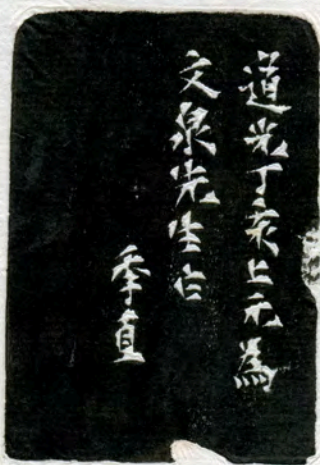 道光丁亥上元為
文泉先生仁
季直